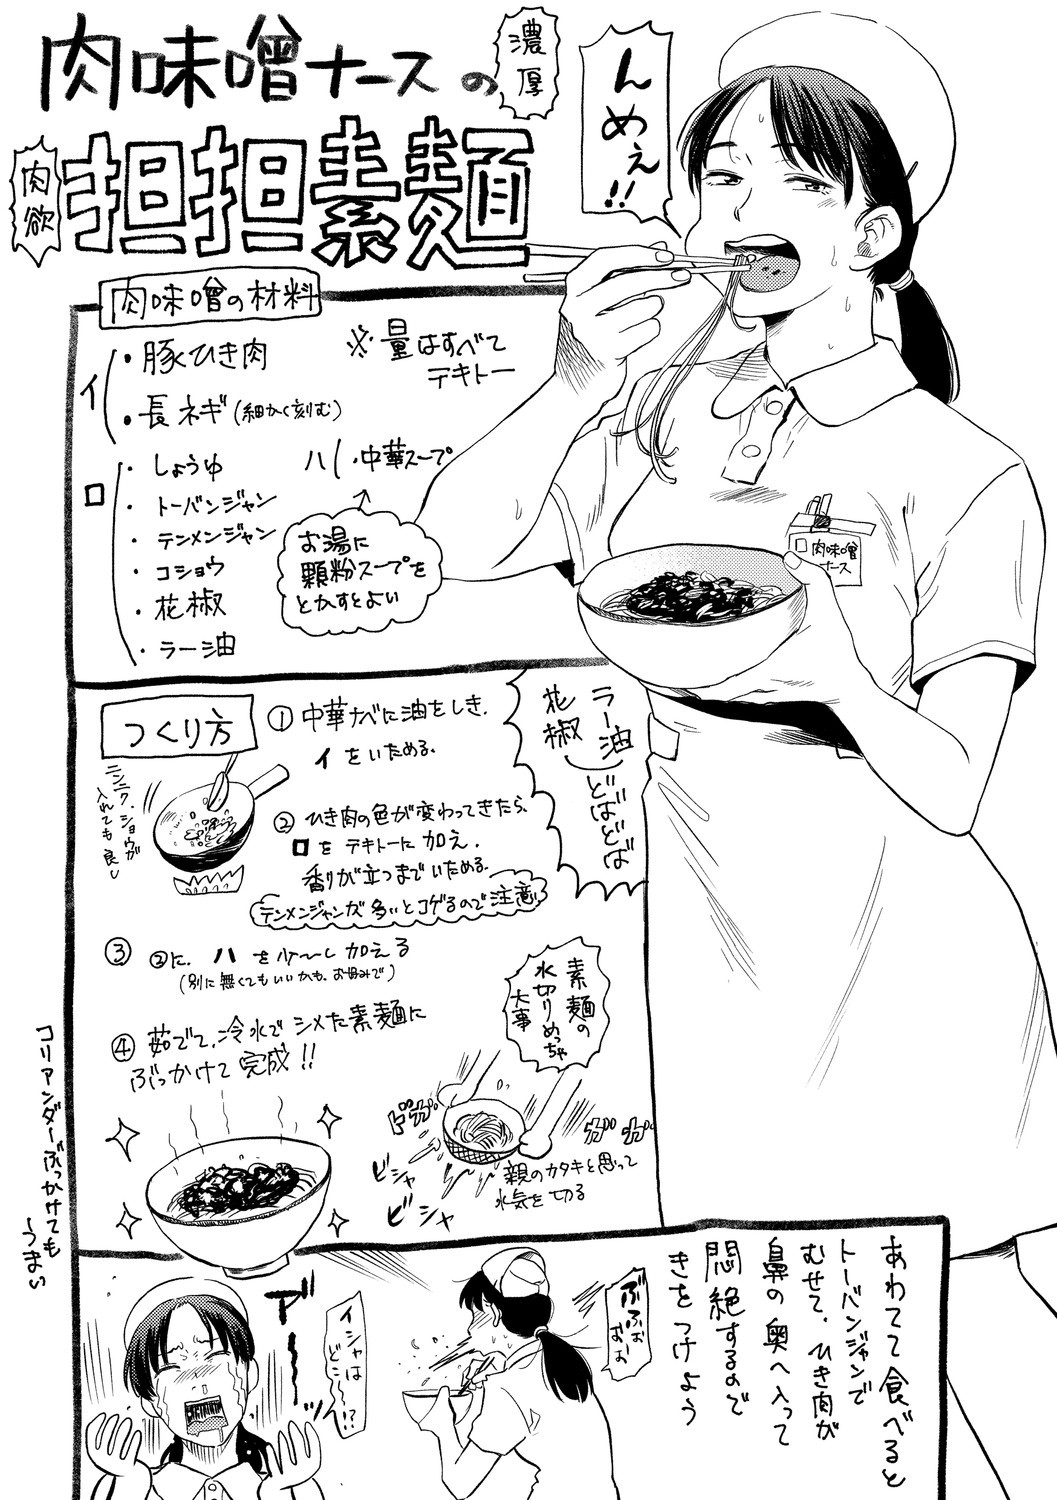 肉味噌ナースの
濃厚
肉欲
担担素麺
んめぇ!!
肉味噌の材料
イ
・豚ひき肉
・長ネギ(細かく刻む)
※量はすべて
テキトー
ロ
・しょうゆ
・トーバンジャン
・テンメンジャン
・コショウ
・花椒
・ラー油
ハ
・中華スープ
お湯に
顆粒スープを
とかすとよい
肉味噌
ナース
つくり方
①中華ナベに油をしき、
イをいためる。
ニンニク、ショウガ
入れても良し
②ひき肉の色が変わってきたら、
ロをテキトーに加え、
香りが立つまでいためる。
テンメンジャンが多いとコゲるので注意
ラー油
花椒
どばどば
③②に、ハを少〜し加える
(別に無くてもいいかも。お好みで)
④茹でて、冷水でシメた素麺に
ぶっかけて完成!!
素麺の
水切りめっちゃ
大事
ビシャ
ビシャ
親のカタキと思って
水気を切る
コリアンダーぶっかけても
うまい
あわてて食べると
トーバンジャンで
むせて、ひき肉が
鼻の奥へ入って
悶絶するので
きをつけよう
ぶふぉ
ぉぉ
イシャは
どこ〜!?
アーーッ